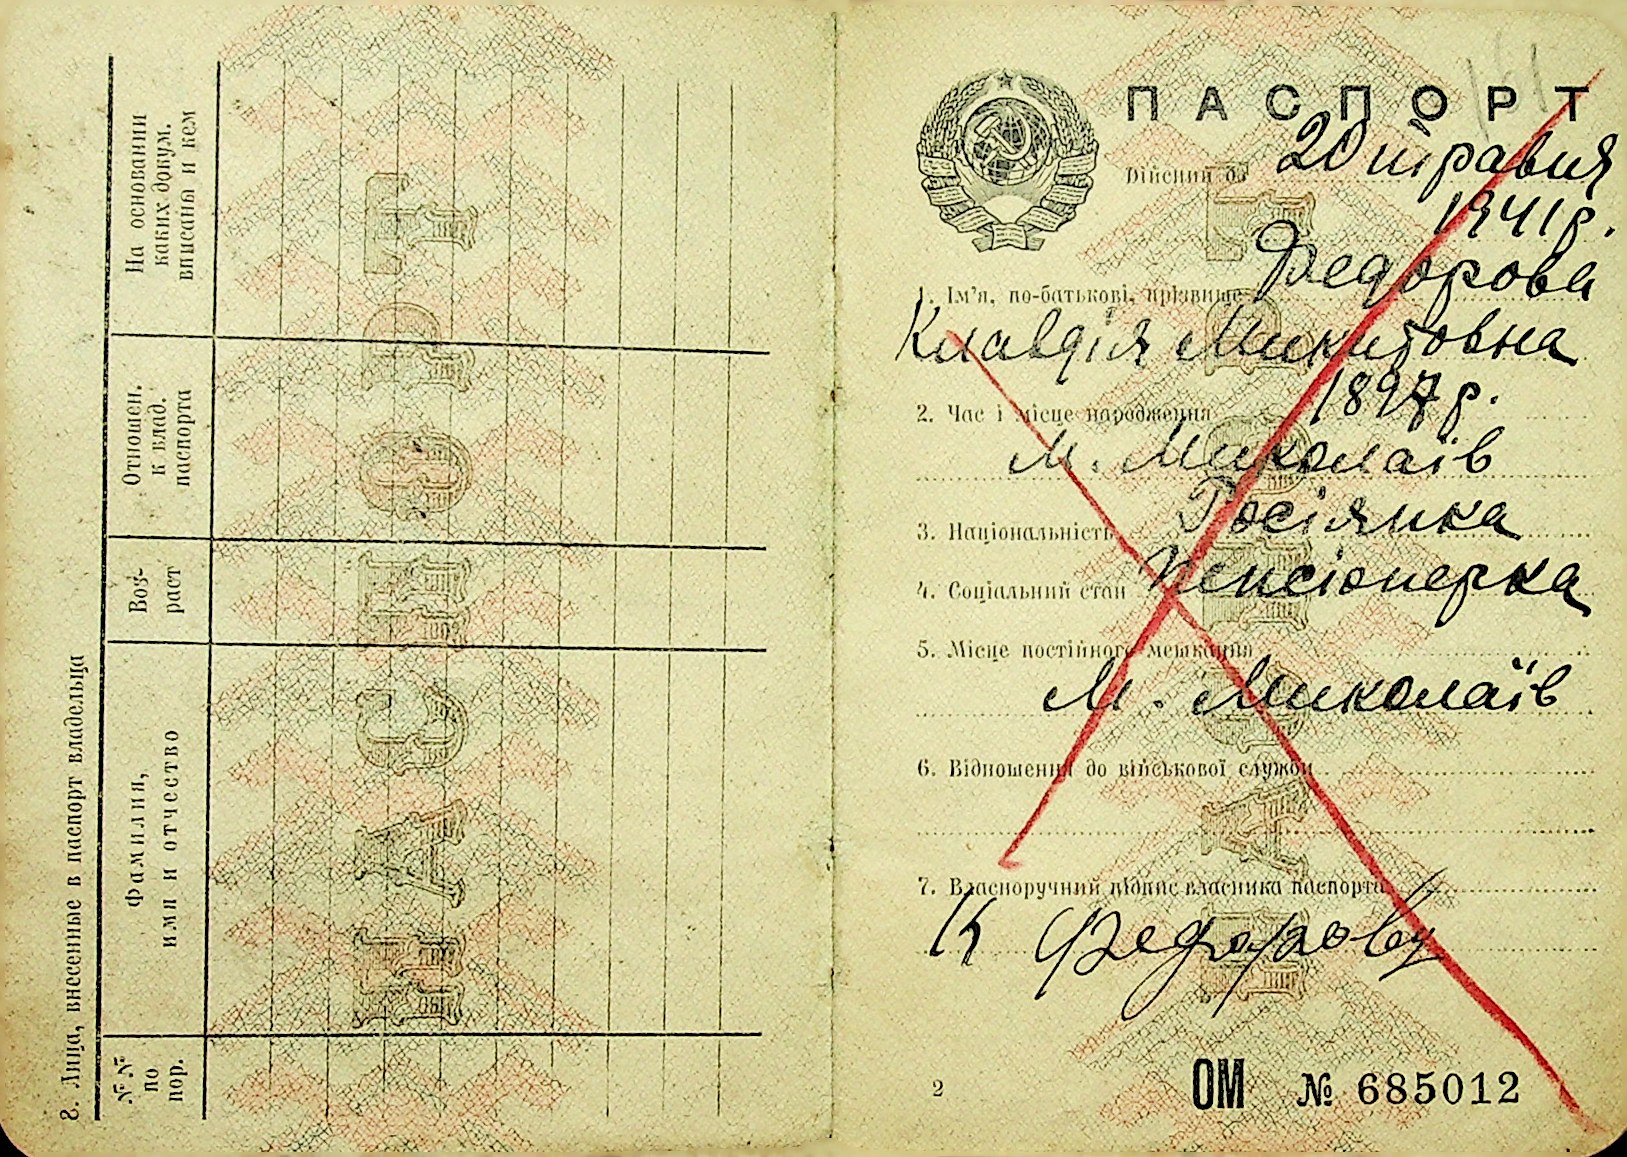 8. Лица, внесенные в паспорт владельца
№№
по
пор.
Фамилия,
имя и отчество
Воз-
раст
Отношен.
к влад.
паспорта
На основании
каких докум.
вписаны и кем
ПАСПОРТ
ПАСПОРТ
Дійсний до 20 травня
1941 р.
1. Ім'я, по-батькові, прізвище Федорова
Клавдія Микитовна
2. Час і місце народження 1897 р.
м. Миколаїв
3. Національність Росіянка
4. Соціальний стан Пенсіонерка
5. Місце постійного мешкання
м. Миколаїв
6. Відношення до військової служби
7. Власноручний підпис власника паспорта
К Федорову
2
ОМ № 685012
ПАСПОРТ